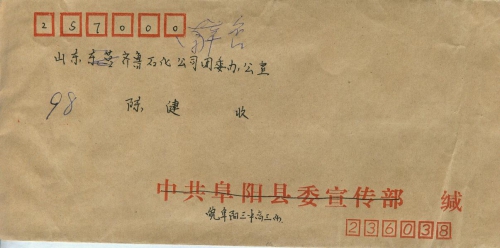 257000
山东东营齐鲁石化公司团委办公室
98 陈健 收
中共阜阳县委宣传部 缄
皖阜阳三中高三
236038